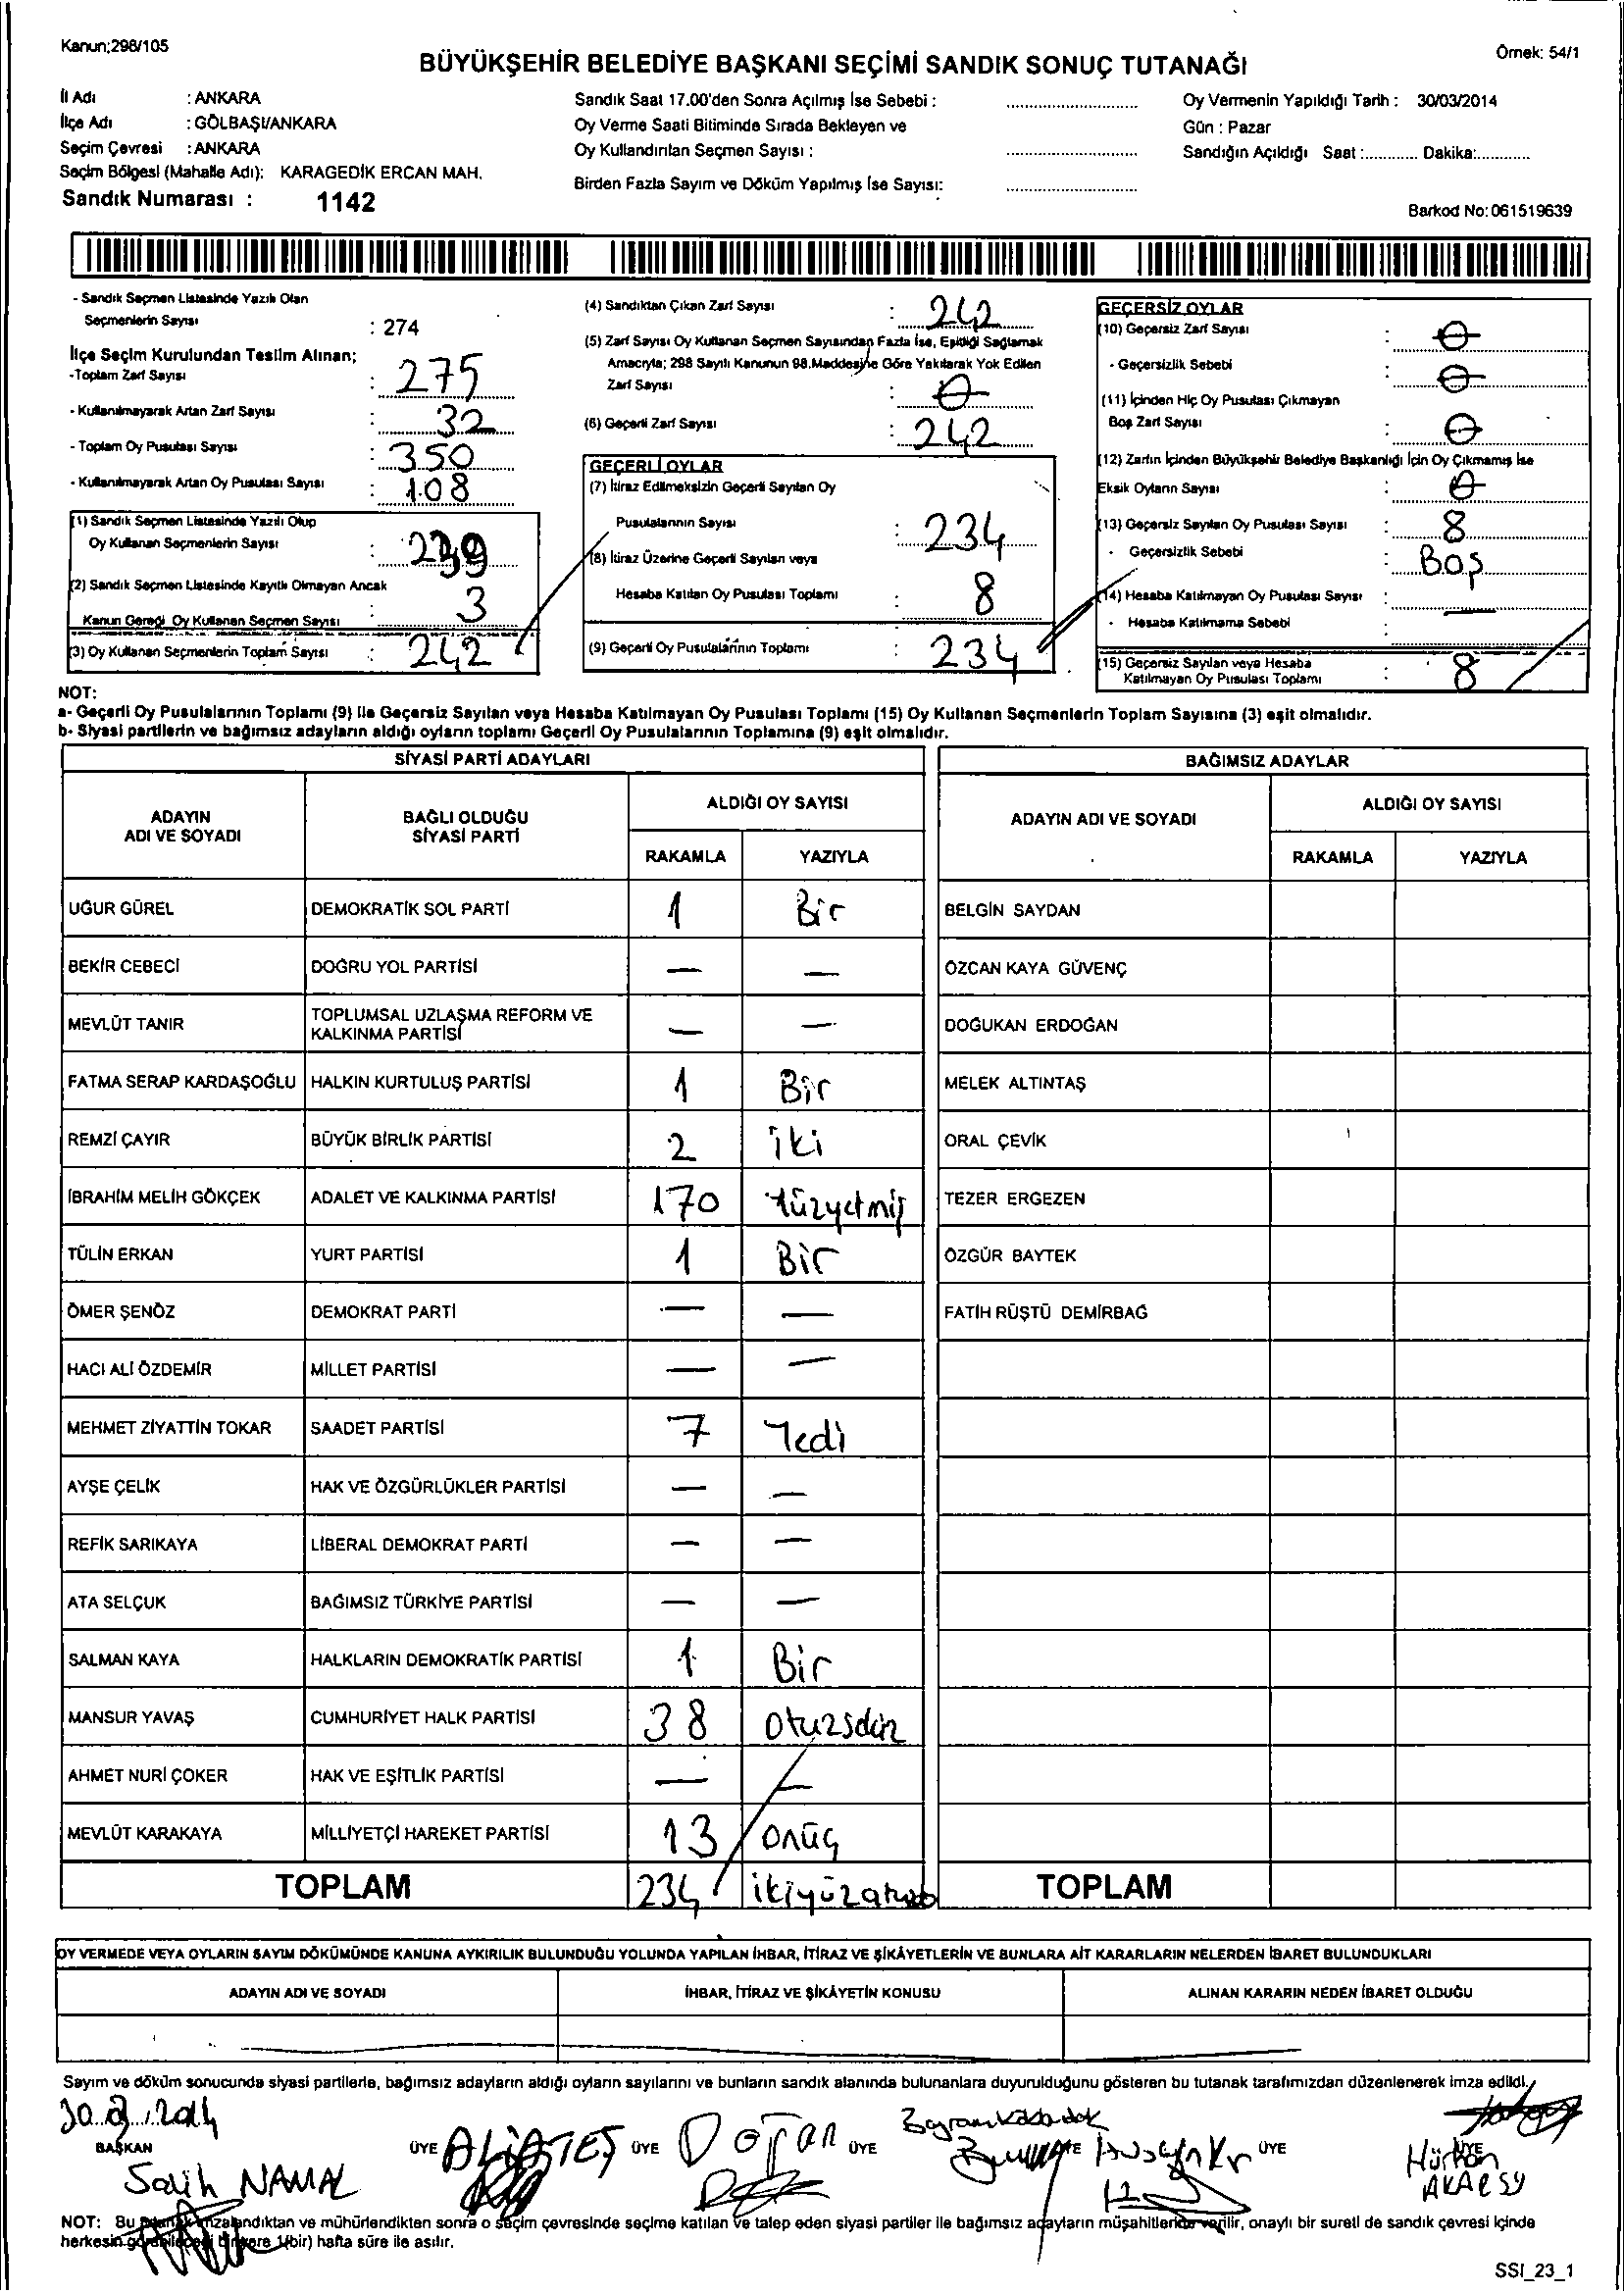 Kanun;298/105
Örnek: 54/1
BÜYÜKŞEHİR BELEDİYE BAŞKANI SEÇİMİ SANDIK SONUÇ TUTANAĞI
İl Adı : ANKARA
İlçe Adı : GÖLBAŞI/ANKARA
Seçim Çevresi : ANKARA
Seçim Bölgesi (Mahalle Adı): KARAGEDİK ERCAN MAH.
Sandık Numarası : 1142
Sandık Saat 17.00'den Sonra Açılmış İse Sebebi :
Oy Verme Saati Bitiminde Sırada Bekleyen ve
Oy Kullandırılan Seçmen Sayısı :
Birden Fazla Sayım ve Döküm Yapılmış İse Sayısı:
Oy Vermenin Yapıldığı Tarih : 30/03/2014
Gün : Pazar
Sandığın Açıldığı Saat :............ Dakika:............
Barkod No: 061519639
- Sandık Seçmen Listesinde Yazılı Olan
Seçmenlerin Sayısı : 274
İlçe Seçim Kurulundan Teslim Alınan;
-Toplam Zarf Sayısı : 275
- Kullanılmayarak Artan Zarf Sayısı : 32
- Toplam Oy Pusulası Sayısı : 350
- Kullanılmayarak Artan Oy Pusulası Sayısı : 108
(1) Sandık Seçmen Listesinde Yazılı Olup
Oy Kullanan Seçmenlerin Sayısı : 239
(2) Sandık Seçmen Listesinde Kayıtlı Olmayan Ancak
Kanun Gereği Oy Kullanan Seçmen Sayısı : 3
(3) Oy Kullanan Seçmenlerin Toplam Sayısı : 242
(4) Sandıktan Çıkan Zarf Sayısı : 242
(5) Zarf Sayısı Oy Kullanan Seçmen Sayısından Fazla İse, Eşitliği Sağlamak
Amacıyla; 298 Sayılı Kanunun 98.Maddesine Göre Yakılarak Yok Edilen
Zarf Sayısı : 0
(6) Geçerli Zarf Sayısı : 242
GEÇERLİ OYLAR
(7) İtiraz Edilmeksizin Geçerli Sayılan Oy
Pusulalarının Sayısı : 234
(8) İtiraz Üzerine Geçerli Sayılan veya
Hesaba Katılan Oy Pusulası Toplamı : 8
(9) Geçerli Oy Pusulalarının Toplamı : 234
GEÇERSİZ OYLAR
(10) Geçersiz Zarf Sayısı : 0
- Geçersizlik Sebebi : 0
(11) İçinden Hiç Oy Pusulası Çıkmayan
Boş Zarf Sayısı : 0
(12) Zarfın İçinden Büyükşehir Belediye Başkanlığı İçin Oy Çıkmamış İse
Eksik Oyların Sayısı : 0
(13) Geçersiz Sayılan Oy Pusulası Sayısı : 8
- Geçersizlik Sebebi : Boş
(14) Hesaba Katılmayan Oy Pusulası Sayısı : —
- Hesaba Katılmama Sebebi :
(15) Geçersiz Sayılan veya Hesaba
Katılmayan Oy Pusulası Toplamı : 8
NOT:
a- Geçerli Oy Pusulalarının Toplamı (9) ile Geçersiz Sayılan veya Hesaba Katılmayan Oy Pusulası Toplamı (15) Oy Kullanan Seçmenlerin Toplam Sayısına (3) eşit olmalıdır.
b- Siyasi partilerin ve bağımsız adayların aldığı oyların toplamı Geçerli Oy Pusulalarının Toplamına (9) eşit olmalıdır.
SİYASİ PARTİ ADAYLARI
ADAYIN ADI VE SOYADI BAĞLI OLDUĞU SİYASİ PARTİ ALDIĞI OY SAYISI
RAKAMLA YAZIYLA
UĞUR GÜREL DEMOKRATİK SOL PARTİ 1 Bir
BEKİR CEBECİ DOĞRU YOL PARTİSİ — —
MEVLÜT TANIR TOPLUMSAL UZLAŞMA REFORM VE KALKINMA PARTİSİ — —
FATMA SERAP KARDAŞOĞLU HALKIN KURTULUŞ PARTİSİ 1 Bir
REMZİ ÇAYIR BÜYÜK BİRLİK PARTİSİ 2 iki
İBRAHİM MELİH GÖKÇEK ADALET VE KALKINMA PARTİSİ 170 Yüzyetmiş
TÜLİN ERKAN YURT PARTİSİ 1 Bir
ÖMER ŞENÖZ DEMOKRAT PARTİ — —
HACI ALİ ÖZDEMİR MİLLET PARTİSİ — —
MEHMET ZİYATTİN TOKAR SAADET PARTİSİ 7 Yedi
AYŞE ÇELİK HAK VE ÖZGÜRLÜKLER PARTİSİ — —
REFİK SARIKAYA LİBERAL DEMOKRAT PARTİ — —
ATA SELÇUK BAĞIMSIZ TÜRKİYE PARTİSİ — —
SALMAN KAYA HALKLARIN DEMOKRATİK PARTİSİ 1 Bir
MANSUR YAVAŞ CUMHURİYET HALK PARTİSİ 38
AHMET NURİ ÇOKER HAK VE EŞİTLİK PARTİSİ — —
MEVLÜT KARAKAYA MİLLİYETÇİ HAREKET PARTİSİ 13 onüç
TOPLAM 234
BAĞIMSIZ ADAYLAR
ADAYIN ADI VE SOYADI ALDIĞI OY SAYISI
RAKAMLA YAZIYLA
BELGİN SAYDAN
ÖZCAN KAYA GÜVENÇ
DOĞUKAN ERDOĞAN
MELEK ALTINTAŞ
ORAL ÇEVİK
TEZER ERGEZEN
ÖZGÜR BAYTEK
FATİH RÜŞTÜ DEMİRBAĞ
TOPLAM
OY VERMEDE VEYA OYLARIN SAYIM DÖKÜMÜNDE KANUNA AYKIRILIK BULUNDUĞU YOLUNDA YAPILAN İHBAR, İTİRAZ VE ŞİKÂYETLERİN VE BUNLARA AİT KARARLARIN NELERDEN İBARET BULUNDUKLARI
ADAYIN ADI VE SOYADI İHBAR, İTİRAZ VE ŞİKÂYETİN KONUSU ALINAN KARARIN NEDEN İBARET OLDUĞU
Sayım ve döküm sonucunda siyasi partilerle, bağımsız adayların aldığı oyların sayılarını ve bunların sandık alanında bulunanlara duyurulduğunu gösteren bu tutanak tarafımızdan düzenlenerek imza edildi.
30.3.2014
BAŞKAN ÜYE ÜYE ÜYE ÜYE ÜYE ÜYE
Salih NAMAL
ALİ ATEŞ
Doğan
Hürkan
AKARSU
NOT: Bu tutanak imzalandıktan ve mühürlendikten sonra o seçim çevresinde seçime katılan ve talep eden siyasi partiler ile bağımsız adayların müşahitlerine verilir, onaylı bir sureti de sandık çevresi içinde
herkesin görebileceği bir yere 1(bir) hafta süre ile asılır.
SSI_23_1